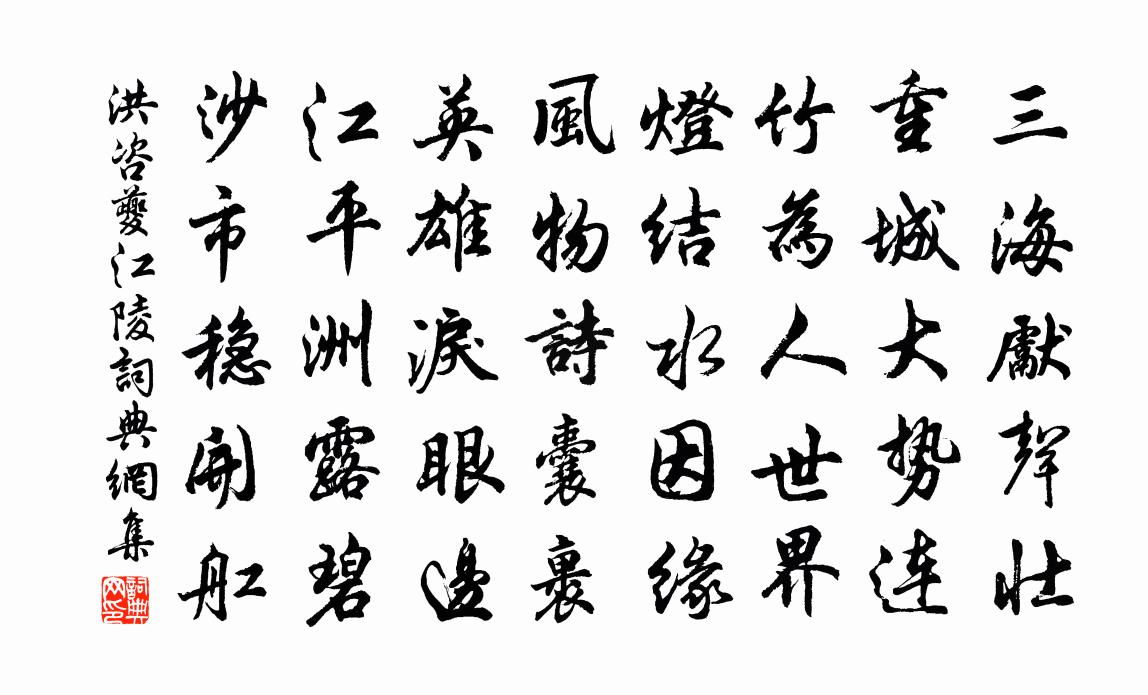 三海獻聲壯
重城大势連
竹為人世界
燈結水因緣
風物詩囊裏
英雄淚眼邊
江平洲露碧
沙市稳開舡
洪咨夔江陵詞典網集
詞典